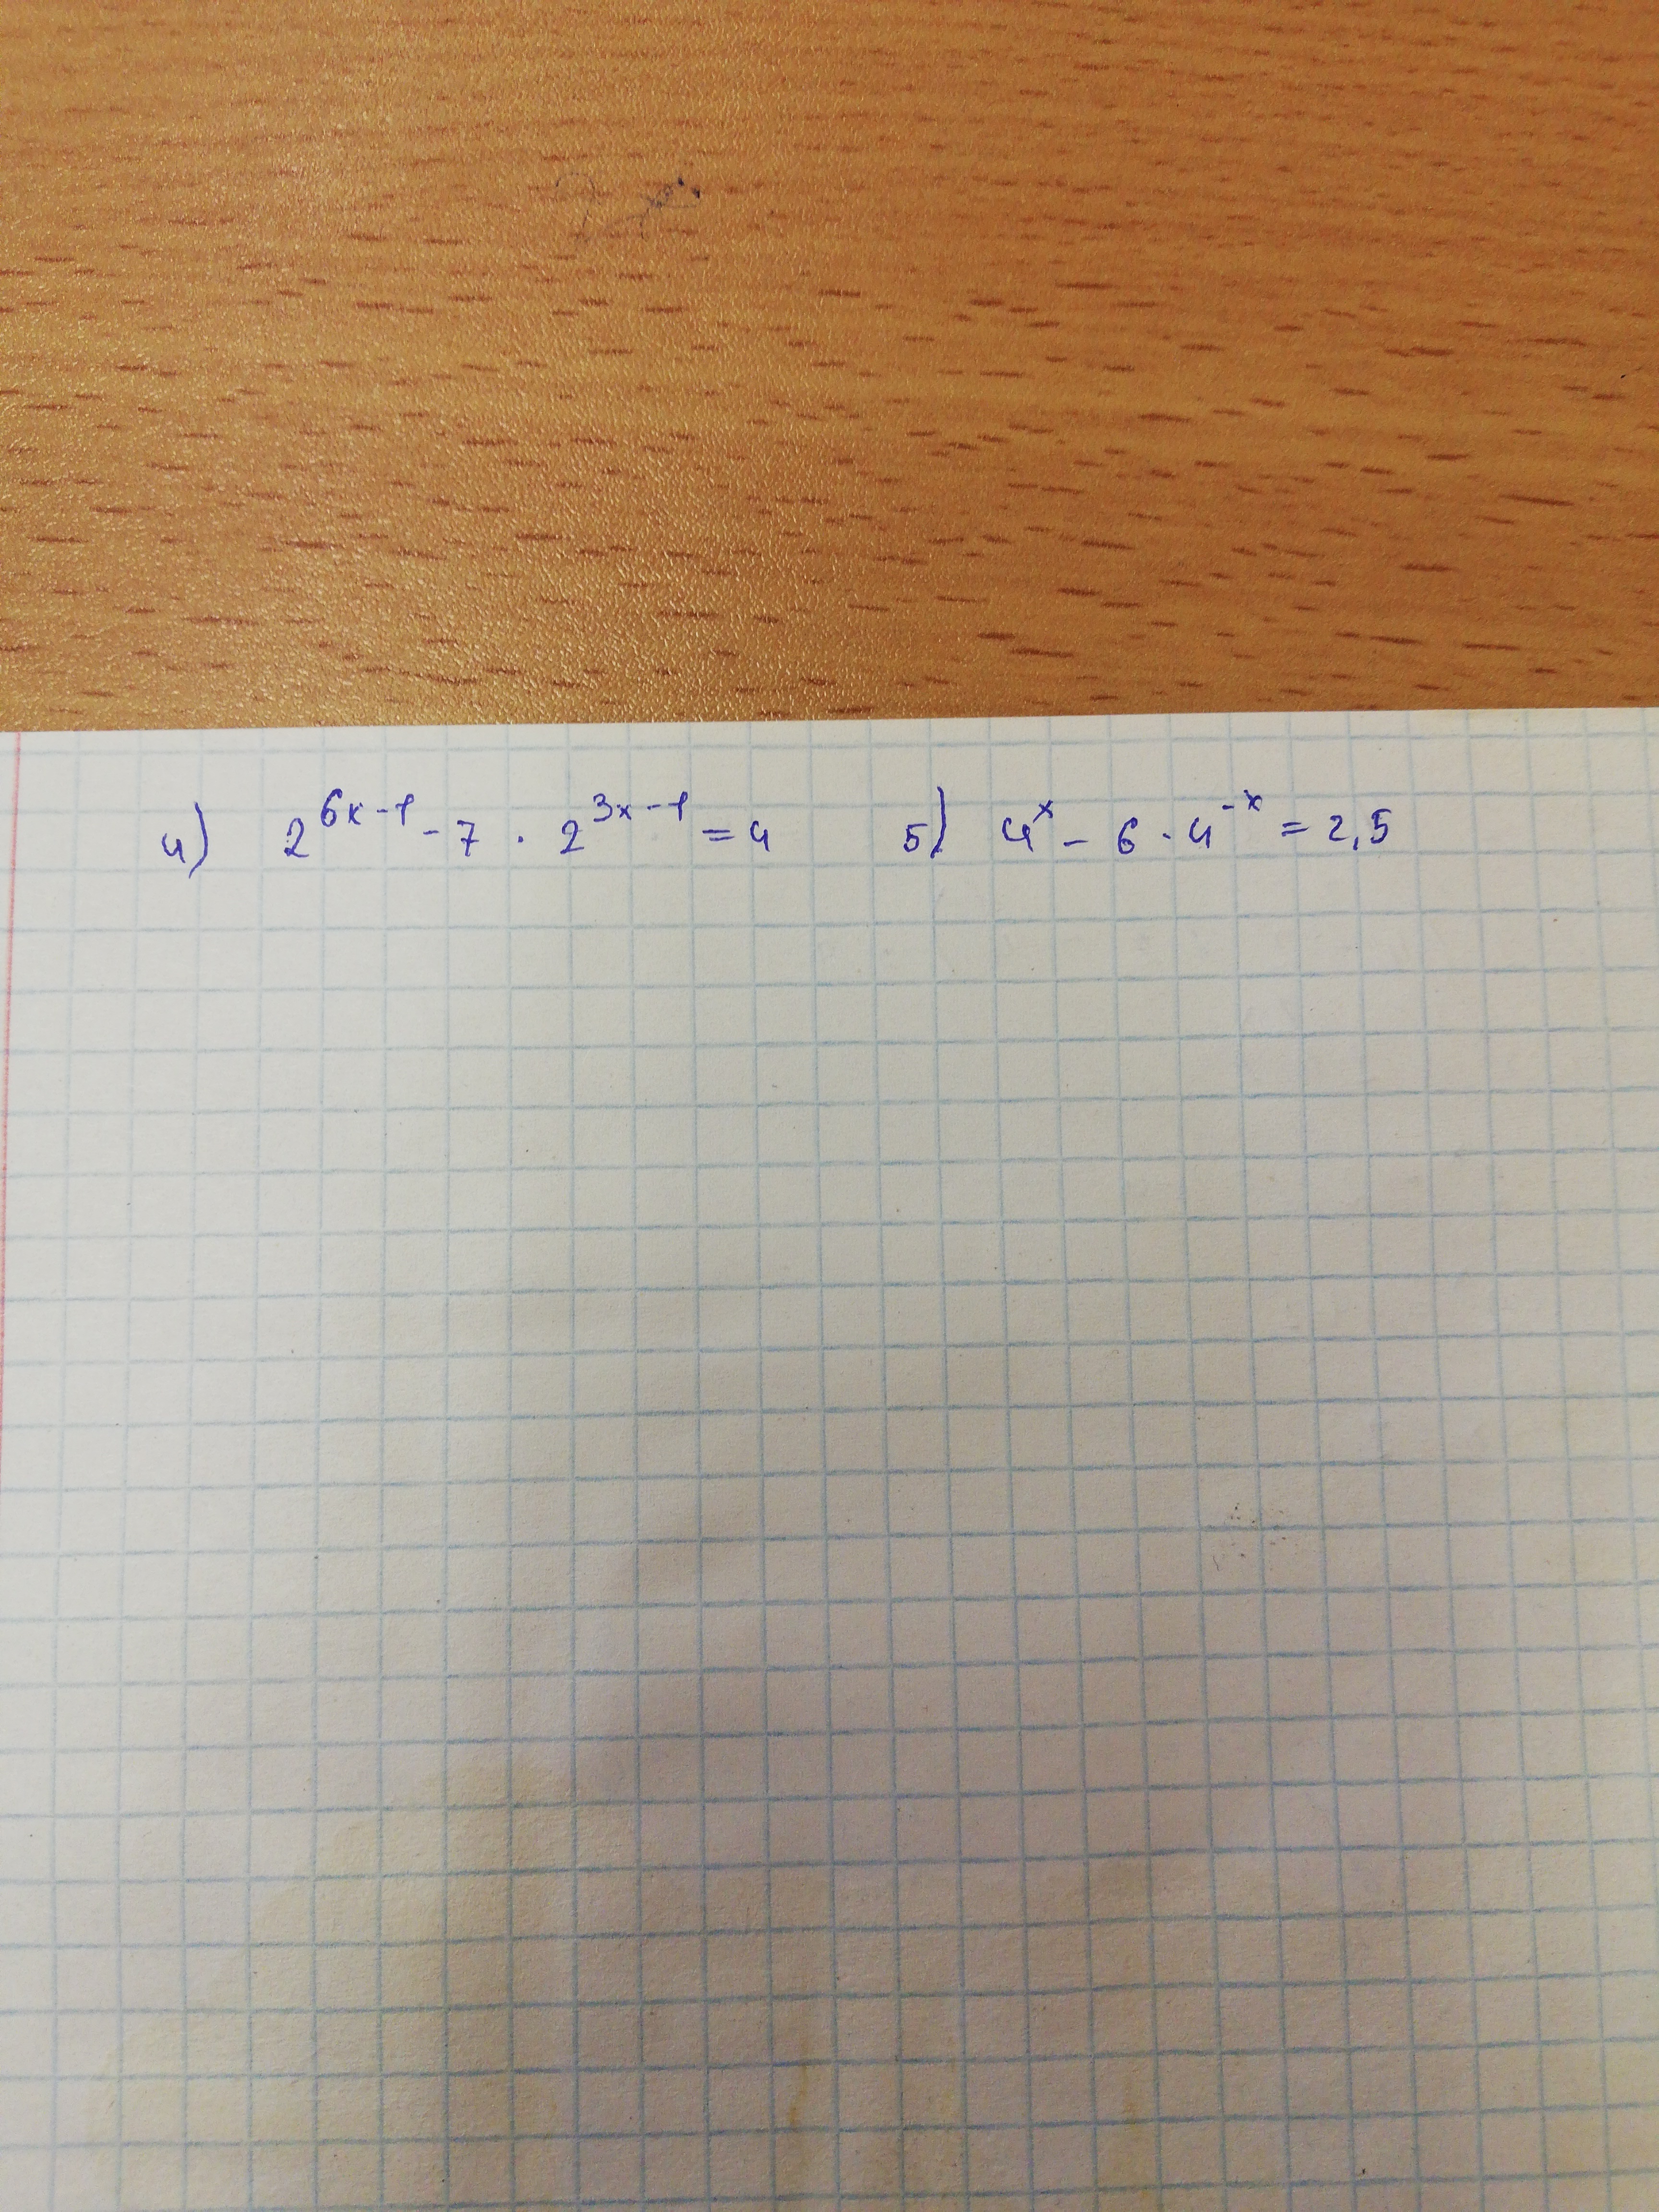 4) 2^{6x-1} - 7 · 2^{3x-1} = 4 5) 4^x - 6 · 4^{-x} = 2,5